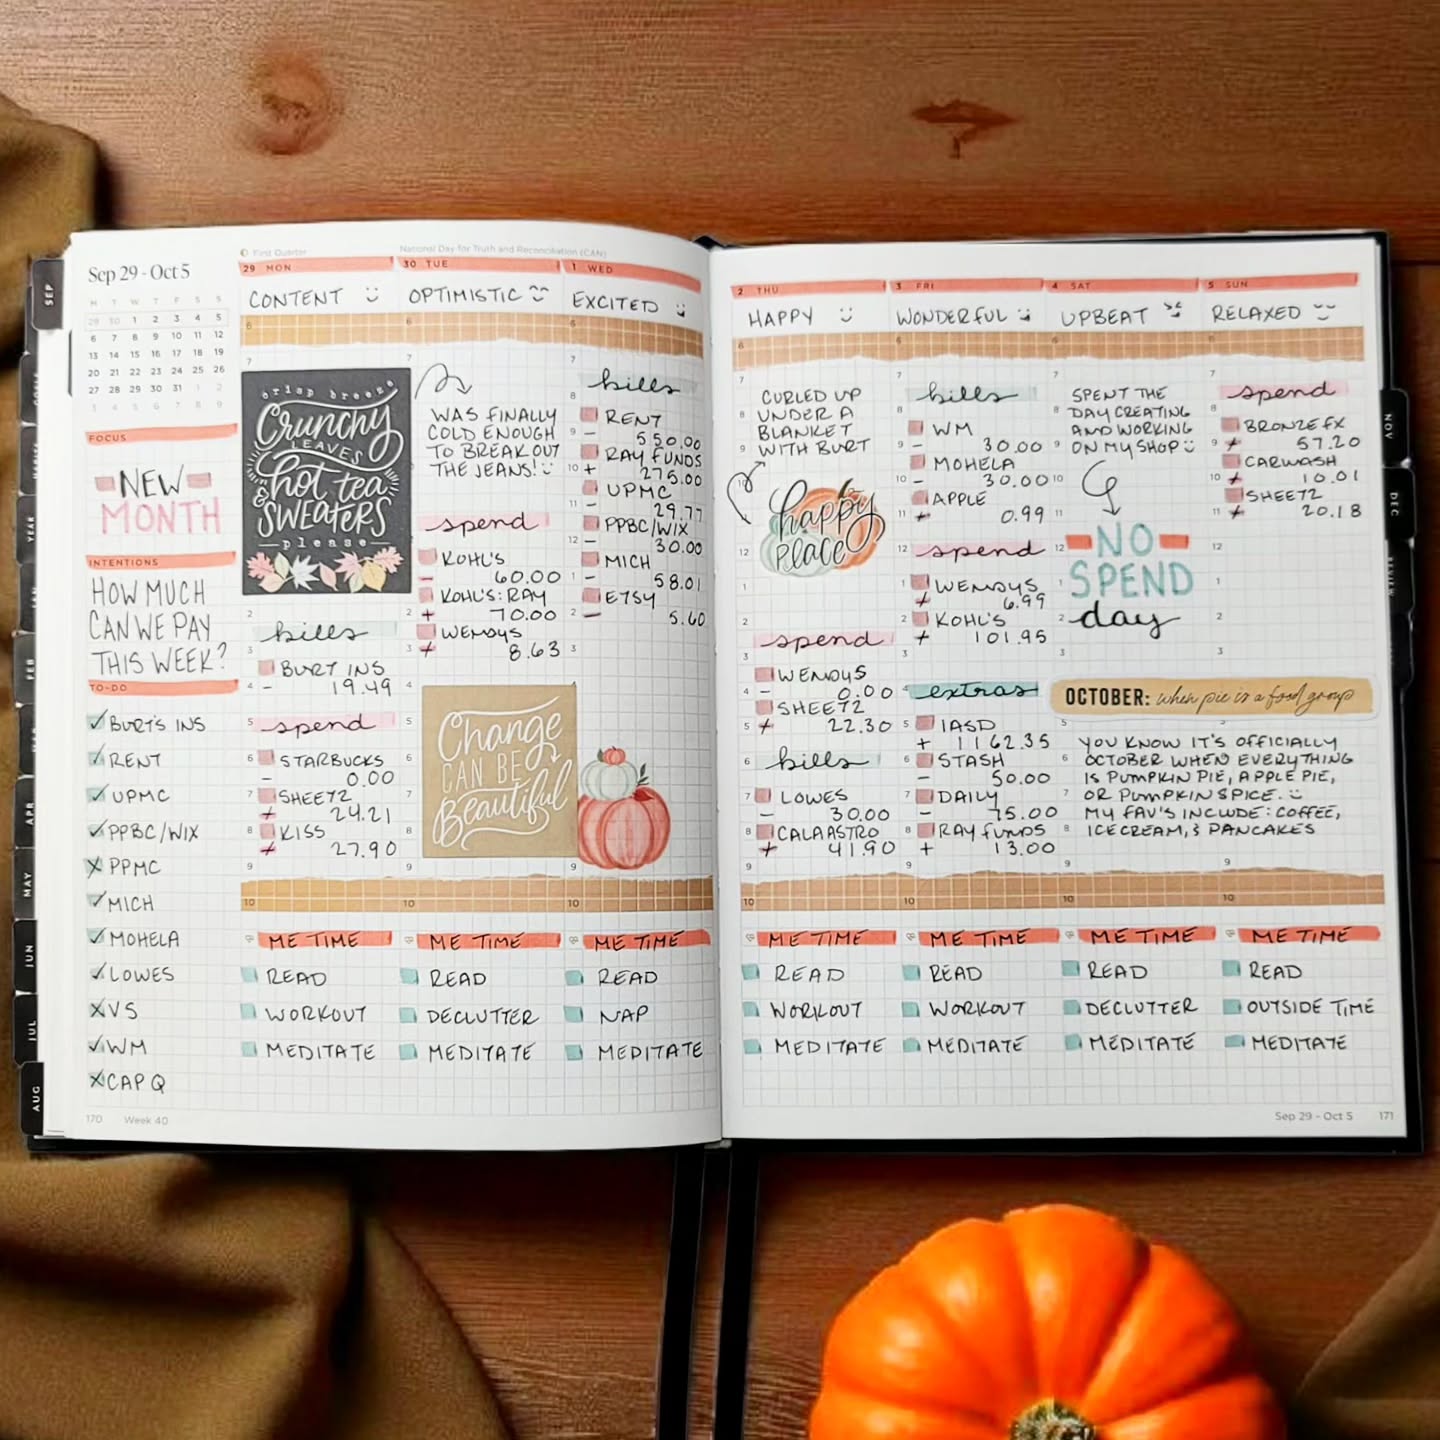 Sep 29 - Oct 5
M T W T F S S
29 30 1 2 3 4 5
6 7 8 9 10 11 12
13 14 15 16 17 18 19
20 21 22 23 24 25 26
27 28 29 30 31 1 2
3 4 5 6 7 8 9
FOCUS
NEW
MONTH
INTENTIONS
HOW MUCH
CAN WE PAY
THIS WEEK?
TO-DO
BURT'S INS
RENT
UPMC
PPBC/WIX
PPMC
MICH
MOHELA
LOWES
VS
WM
CAP Q
170 Week 40
First Quarter
29 MON
CONTENT
6
7
crisp breeze
Crunchy
LEAVES
& hot tea
SWEATERS
please
2
bills
3
BURT INS
4
- 19.49
5
spend
6
STARBUCKS
- 0.00
7
SHEETZ
+ 24.21
8
KISS
+ 27.90
9
10
ME TIME
READ
WORKOUT
MEDITATE
National Day for Truth and Reconciliation (CAN)
30 TUE
OPTIMISTIC
6
7
WAS FINALLY
COLD ENOUGH
TO BREAK OUT
THE JEANS!
spend
KOHL'S
- 60.00
KOHL'S: RAY
2
+ 70.00
WENDYS
3
+ 8.63
4
Change
CAN BE
Beautiful
9
10
ME TIME
READ
DECLUTTER
MEDITATE
1 WED
EXCITED
6
7
bills
8
RENT
9
- 550.00
RAY FUNDS
10
+ 275.00
UPMC
11
- 29.77
PPBC/WIX
12
- 30.00
MICH
1
- 58.01
ETSY
2
- 5.60
3
9
10
ME TIME
READ
NAP
MEDITATE
2 THU
HAPPY
6
7
CURLED UP
8
UNDER A
BLANKET
9
WITH BURT
10
happy
PLACE
11
12
1
2
spend
3
WENDYS
4
- 0.00
SHEETZ
5
+ 22.30
6
bills
7
LOWES
- 30.00
8
CALAASTRO
+ 41.90
9
10
ME TIME
READ
WORKOUT
MEDITATE
3 FRI
WONDERFUL
6
7
bills
8
WM
9
- 30.00
MOHELA
10
- 30.00
APPLE
11
+ 0.99
12
spend
1
WENDYS
+ 6.99
2
KOHL'S
+ 101.95
3
4
extras
5
IASD
+ 1162.35
6
STASH
- 50.00
7
DAILY
- 75.00
8
RAY FUNDS
+ 13.00
9
10
ME TIME
READ
WORKOUT
MEDITATE
4 SAT
UPBEAT
6
7
SPENT THE
8
DAY CREATING
AND WORKING
9
ON MY SHOP
10
11
12
NO
1
SPEND
2
day
3
OCTOBER: when pie is a food group
5
YOU KNOW IT'S OFFICIALLY
6
OCTOBER WHEN EVERYTHING
IS PUMPKIN PIE, APPLE PIE,
7
OR PUMPKIN SPICE.
MY FAV'S INCLUDE: COFFEE,
8
ICE CREAM, & PANCAKES
9
10
ME TIME
READ
DECLUTTER
MEDITATE
5 SUN
RELAXED
6
7
spend
8
BRONZE FX
9
+ 57.20
CARWASH
10
+ 10.01
SHEETZ
11
+ 20.18
12
1
2
3
9
10
ME TIME
READ
OUTSIDE TIME
MEDITATE
Sep 29 - Oct 5 171
SEP
YEAR
JAN
FEB
MAR
APR
MAY
JUN
JUL
AUG
NOV
DEC
REVIEW